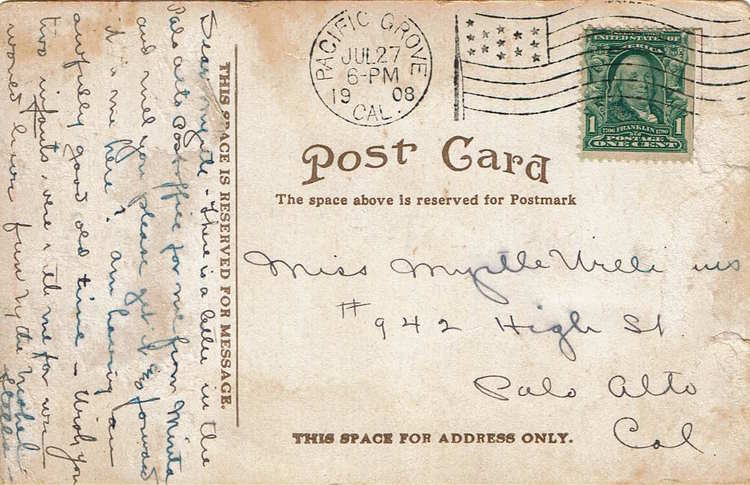 PACIFIC GROVE
JUL 27
6-PM
1908
CAL.
UNITED STATES OF
AMERICA
1706 FRANKLIN 1790
1 POSTAGE 1
ONE CENT
Post Card
The space above is reserved for Postmark
THIS SPACE IS RESERVED FOR MESSAGE.
Dear Myrtle - There is a letter in the
Palo Alto Postoffice for me from Minta
and will you please get it & forward
it to me here? am having an
awfully good old time - Wish you
two infants were with me for we
would have fun by the
Stella -
Miss Myrtle Williams
# 942 High St.
Palo Alto
Cal
THIS SPACE FOR ADDRESS ONLY.